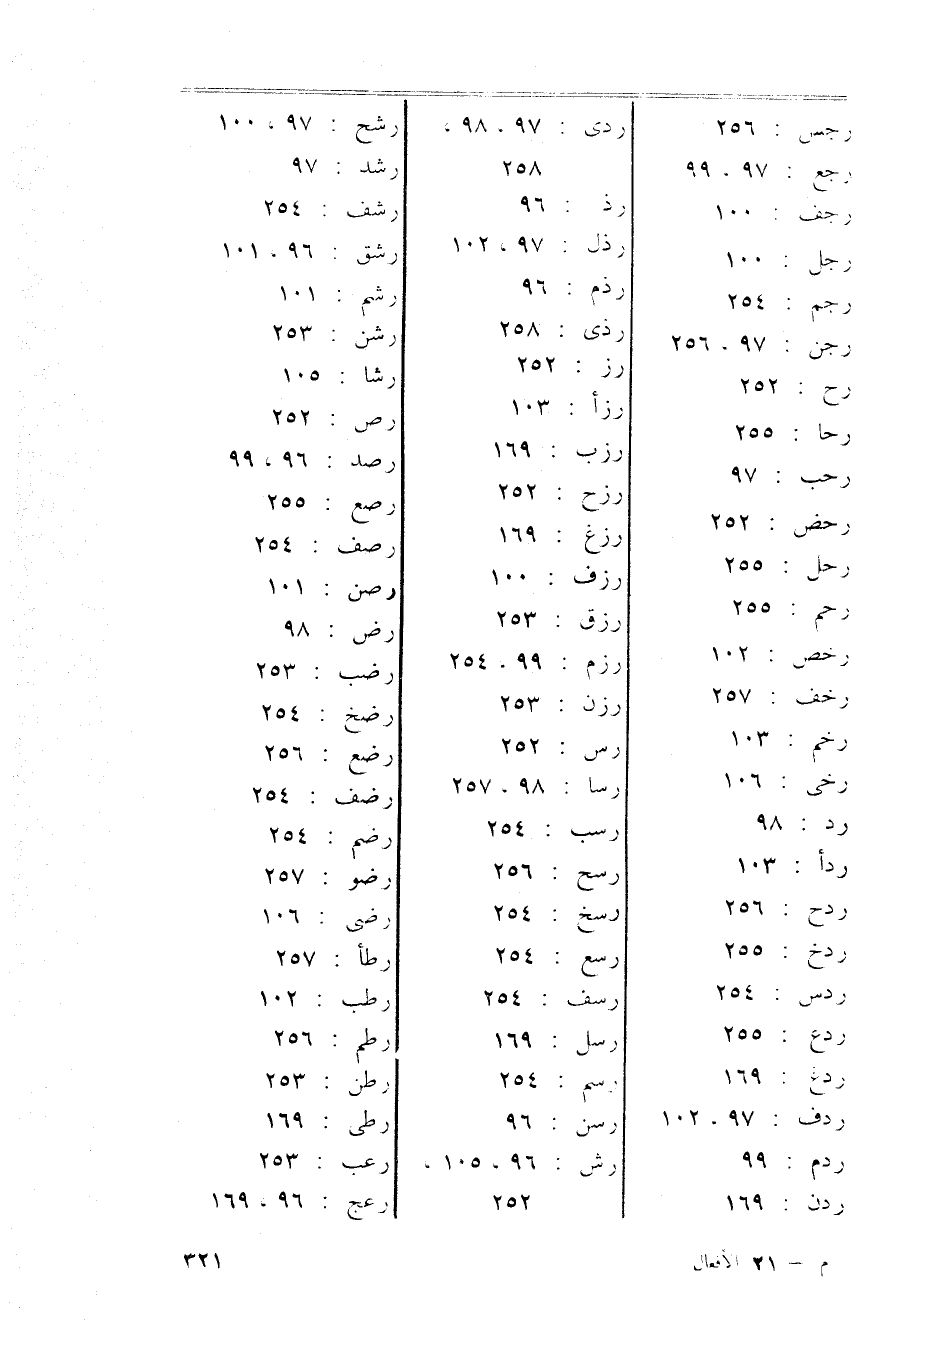 رجس : ٢٥٦
رجع : ٩٧ ، ٩٩
رجف : ١٠٠
رجل : ١٠٠
رجم : ٢٥٤
رجن : ٩٧ ، ٢٥٦
رح : ٢٥٢
رحا : ٢٥٥
رحب : ٩٧
رحض : ٢٥٢
رحل : ٢٥٥
رحم : ٢٥٥
رخص : ١٠٢
رخف : ٢٥٧
رخم : ١٠٣
رخى : ١٠٦
رد : ٩٨
ردأ : ١٠٣
ردح : ٢٥٦
ردخ : ٢٥٥
ردس : ٢٥٤
ردع : ٢٥٥
ردغ : ١٦٩
ردف : ٩٧ ، ١٠٢
ردم : ٩٩
ردن : ١٦٩
ردى : ٩٧ ، ٩٨ ،
٢٥٨
رذ : ٩٦
رذل : ٩٧ ، ١٠٢
رذم : ٩٦
رذى : ٢٥٨
رز : ٢٥٢
رزأ : ١٠٣
رزب : ١٦٩
رزح : ٢٥٢
رزغ : ١٦٩
رزف : ١٠٠
رزق : ٢٥٣
رزم : ٩٩ ، ٢٥٤
رزن : ٢٥٣
رس : ٢٥٢
رسا : ٩٨ ، ٢٥٧
رسب : ٢٥٤
رسح : ٢٥٦
رسخ : ٢٥٤
رسع : ٢٥٤
رسف : ٢٥٤
رسل : ١٦٩
رسم : ٢٥٤
رسن : ٩٦
رش : ٩٦ ، ١٠٥ ،
٢٥٢
رشح : ٩٧ ، ١٠٠
رشد : ٩٧
رشف : ٢٥٤
رشق : ٩٦ ، ١٠١
رشم : ١٠١
رشن : ٢٥٣
رشا : ١٠٥
رص : ٢٥٢
رصد : ٩٦ ، ٩٩
رصع : ٢٥٥
رصف : ٢٥٤
رصن : ١٠١
رض : ٩٨
رضب : ٢٥٣
رضخ : ٢٥٤
رضع : ٢٥٦
رضف : ٢٥٤
رضم : ٢٥٤
رضو : ٢٥٧
رضى : ١٠٦
رطأ : ٢٥٧
رطب : ١٠٢
رطم : ٢٥٦
رطن : ٢٥٣
رطى : ١٦٩
رعب : ٢٥٣
رعج : ٩٦ ، ١٦٩
م – ٢١ الأفعال
٣٢١